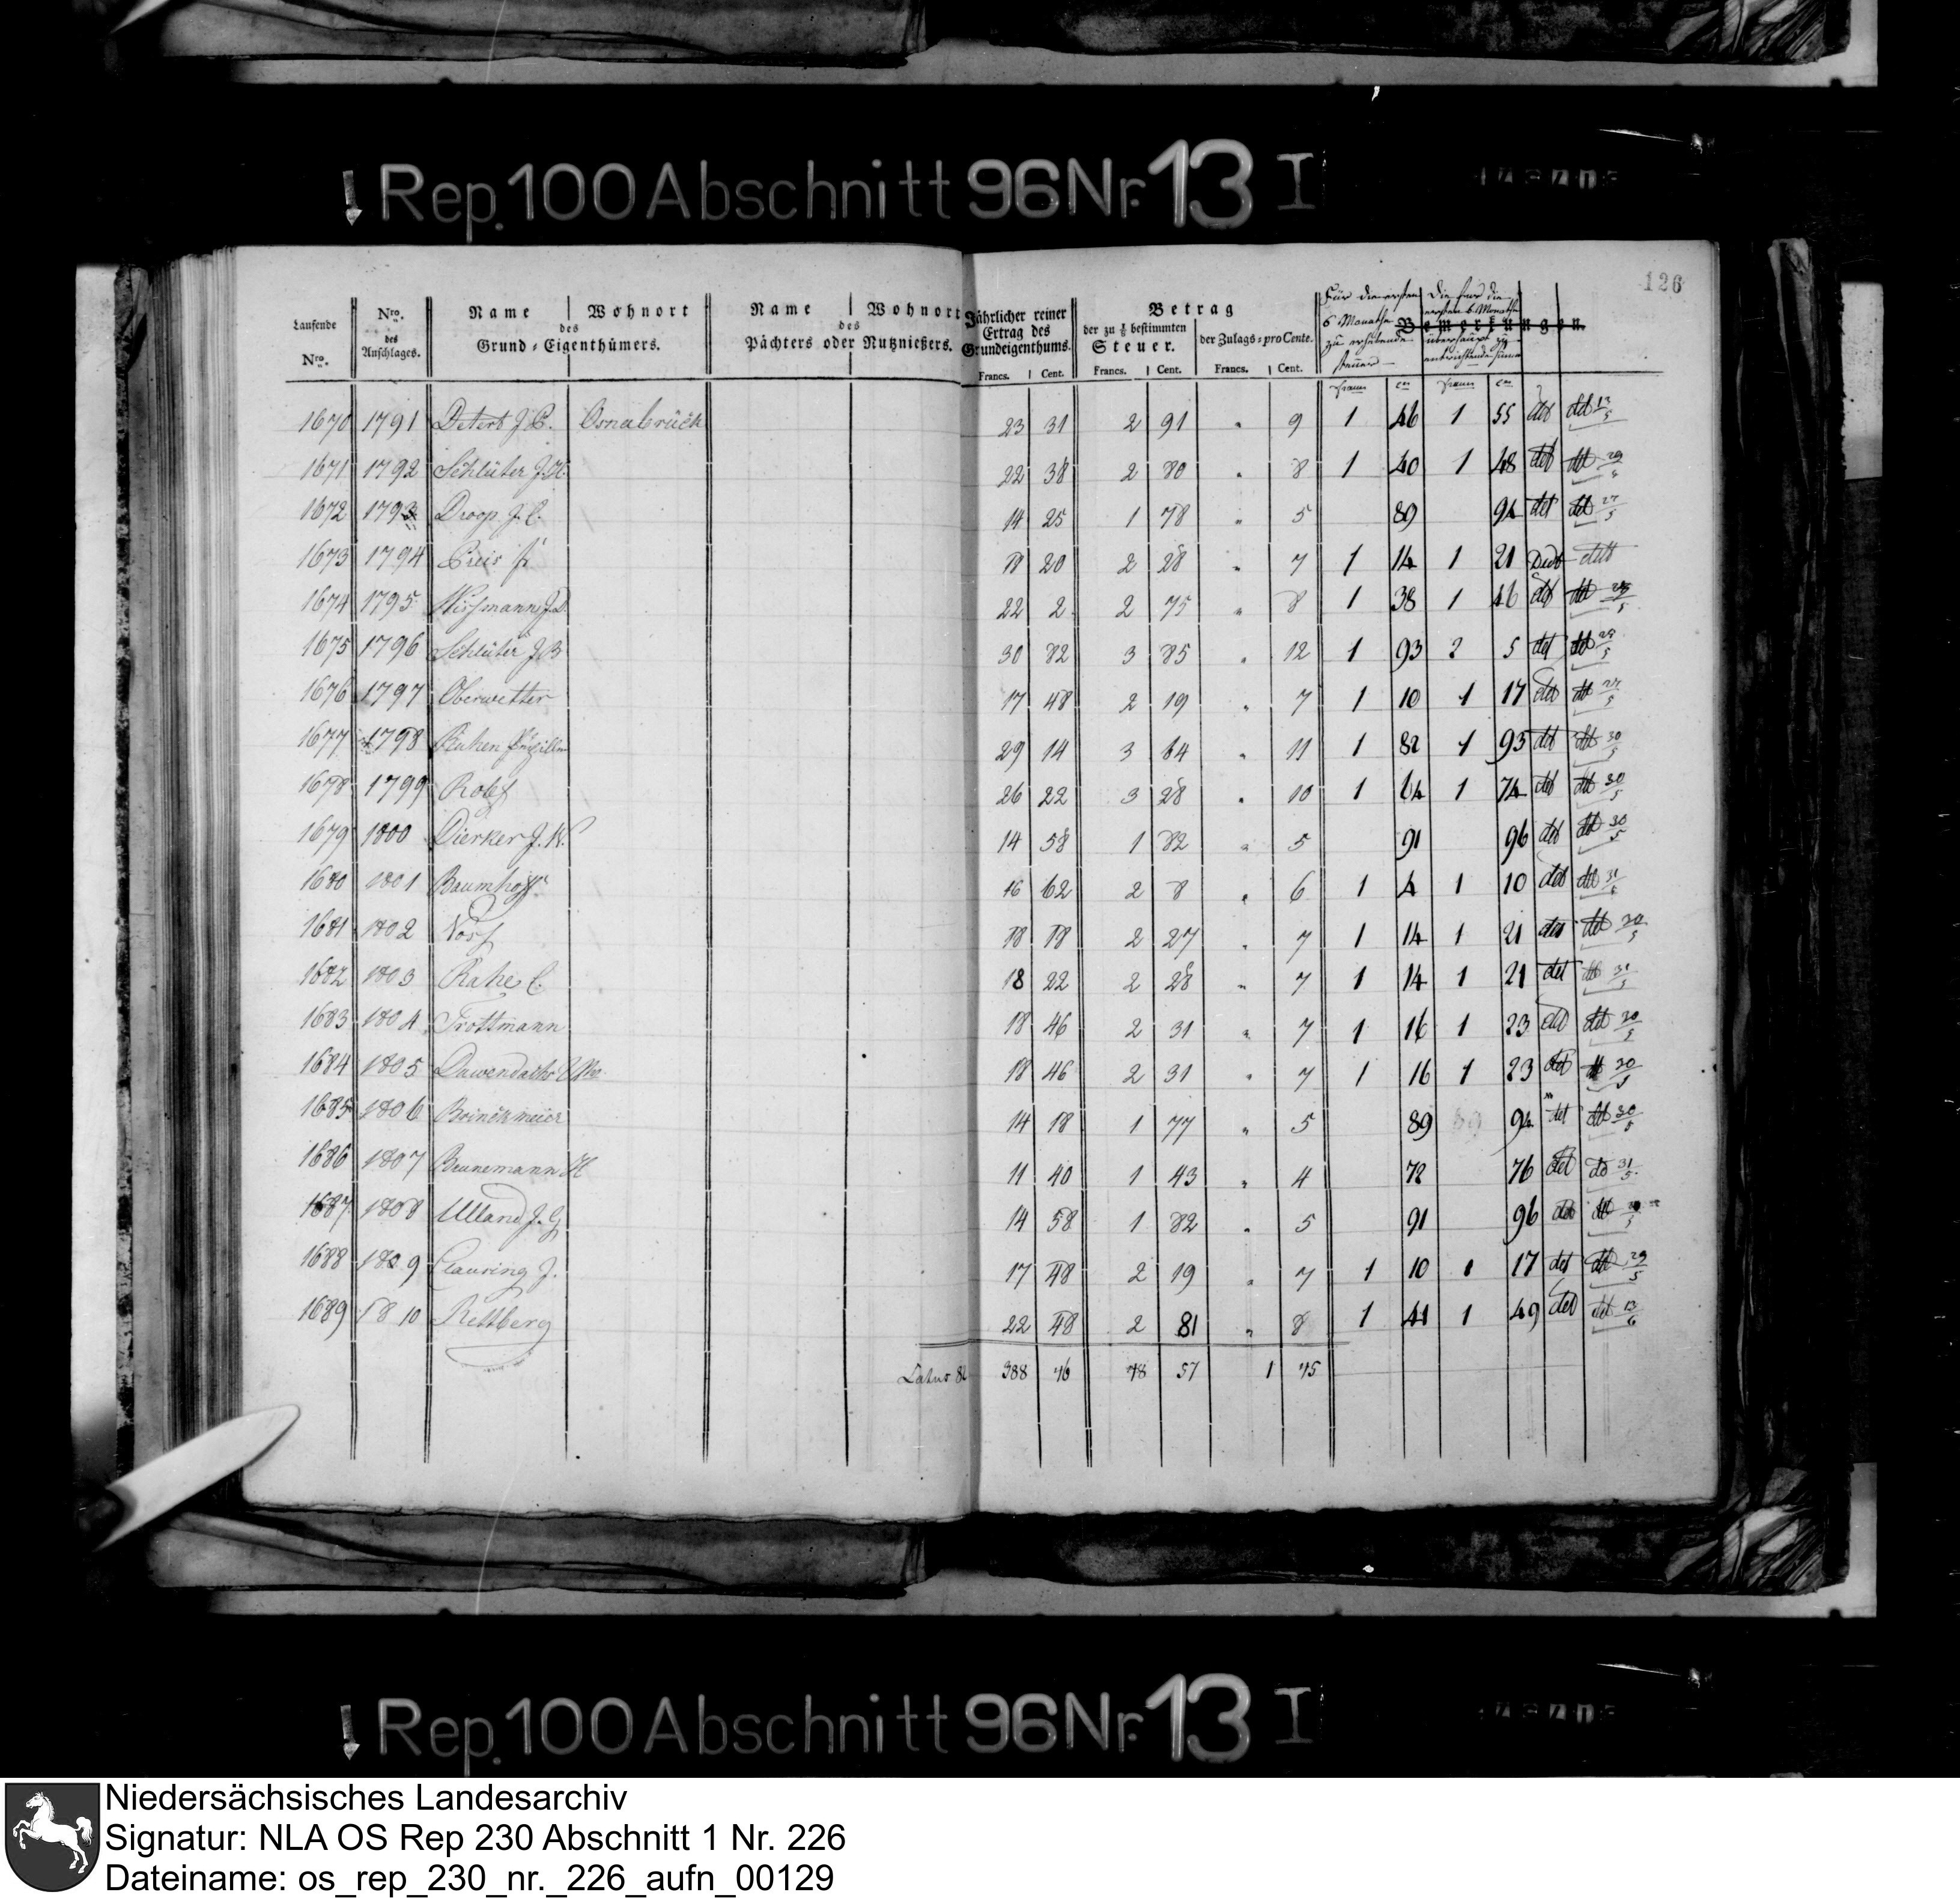 Rep. 100 Abschnitt 96 Nr. 13 I
126
Laufende Nro. Nro. des Anschlages. Name Wohnort des Grund-Eigenthümers. Name Wohnort des Pächters oder Nutznießers. Jährlicher reiner Ertrag des Grundeigenthums. Betrag der zu 1/8 bestimmten Steuer. der Zulags-pro Cente. Bemerkungen.
Für die ersten 6 Monathe zu erhebende Steuer Die für die ersten 6 Monathe überhaupt zu entrichtende Summe
Francs. Cent. Francs. Cent. Francs. Cent. Francs Cen Francs Cen
1670 1791 Detert J. C. Osnabrück 23 31 2 91 " 9 1 46 1 55 det det 13/5
1671 1792 Schlüter J. H. 22 38 2 80 " 8 1 40 1 48 det det 29/5
1672 1793 Droop J. C. 14 25 1 78 " 5 89 94 det det 27/5
1673 1794 18 20 2 28 " 7 1 14 1 21 Dedt dedt
1674 1795 Wissmann J. D. 22 2 2 75 " 8 1 38 1 46 det det 28/5
1675 1796 Schlüter J. B 30 82 3 85 " 12 1 93 2 5 det det 27/5
1676 1797 Oberwetter 17 48 2 19 " 7 1 10 1 17 det det 27/5
1677 1798 29 14 3 64 " 11 1 82 1 93 det det 30/5
1678 1799 Rolef 26 22 3 28 " 10 1 64 1 74 det det 30/5
1679 1800 Dierker J. W. 14 58 1 82 " 5 91 96 det det 30/5
1680 1801 Baumhoff 16 62 2 8 " 6 1 4 1 10 det det 31/5
1681 1802 Voss 18 18 2 27 " 7 1 14 1 21 det det 30/5
1682 1803 Rahe C. 18 22 2 28 " 7 1 14 1 21 det det 31/5
1683 1804 Trottmann 18 46 2 31 " 7 1 16 1 23 det det 30/5
1684 1805 18 46 2 31 " 7 1 16 1 23 det det 30/5
1685 1806 Boinckmeier 14 18 1 77 " 5 89 94 det det 30/5
1686 1807 Beunemann H 11 40 1 43 " 4 72 76 det det 31/5
1687 1808 Ulland J. G 14 58 1 82 " 5 91 96 det det
1688 1809 Clausing J. 17 48 2 19 " 7 1 10 1 17 det det 29/5
1689 1810 Rettberg 22 48 2 81 " 8 1 41 1 49 det det 13/6
Latus 388 76 48 57 1 45
Rep. 100 Abschnitt 96 Nr. 13 I
Niedersächsisches Landesarchiv
Signatur: NLA OS Rep 230 Abschnitt 1 Nr. 226
Dateiname: os_rep_230_nr._226_aufn_00129